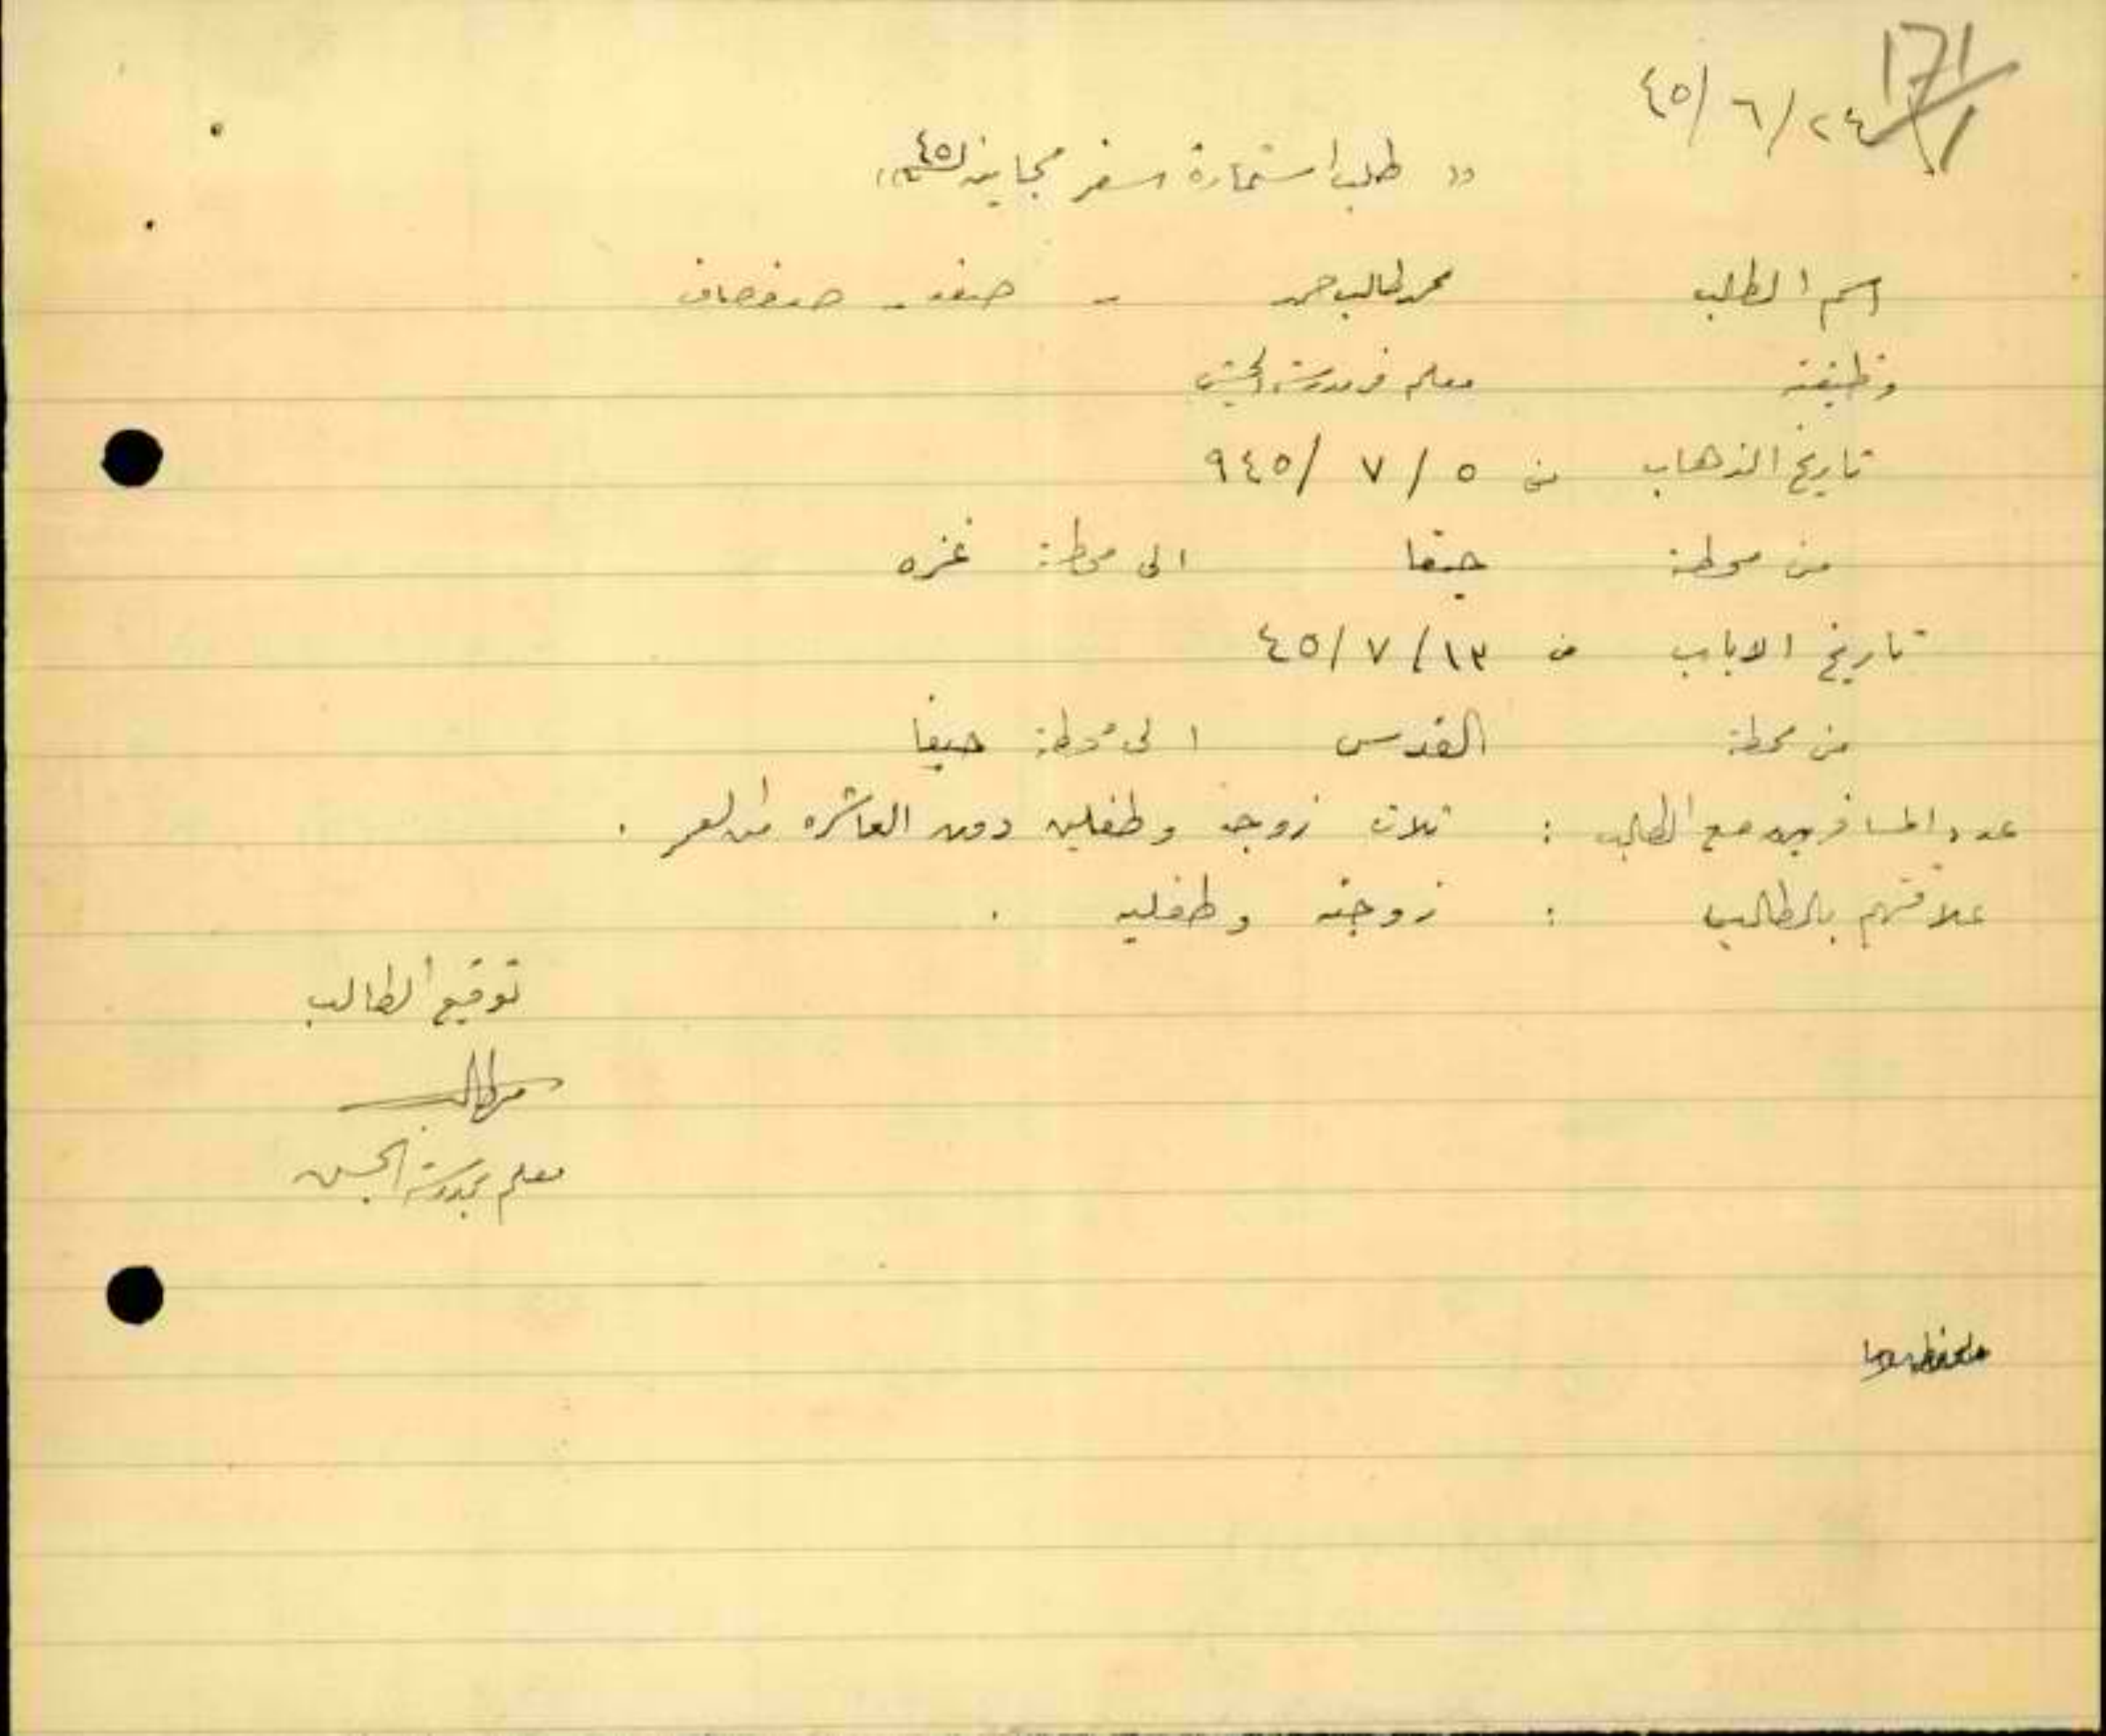 171/1
٢٤/٦/٤٥
" طلب استمارة سفر مجانية ٤٥ "
اسم الطالب محمد طالب حمد - صفد - صفصاف
وظيفته معلم في مدرسة الجش
تاريخ الذهاب في ٥/٧/٩٤٥
من محطة حيفا الى محطة غزه
تاريخ الاياب في ١٣/٧/٤٥
من محطة القدس الى محطة حيفا
عدد المسافرين مع الطالب : ثلاث زوجة وطفلين دون العاشره من العمر .
علاقتهم بالطالب : زوجته وطفليه .
توقيع الطالب
معلم بمدرسة الجش